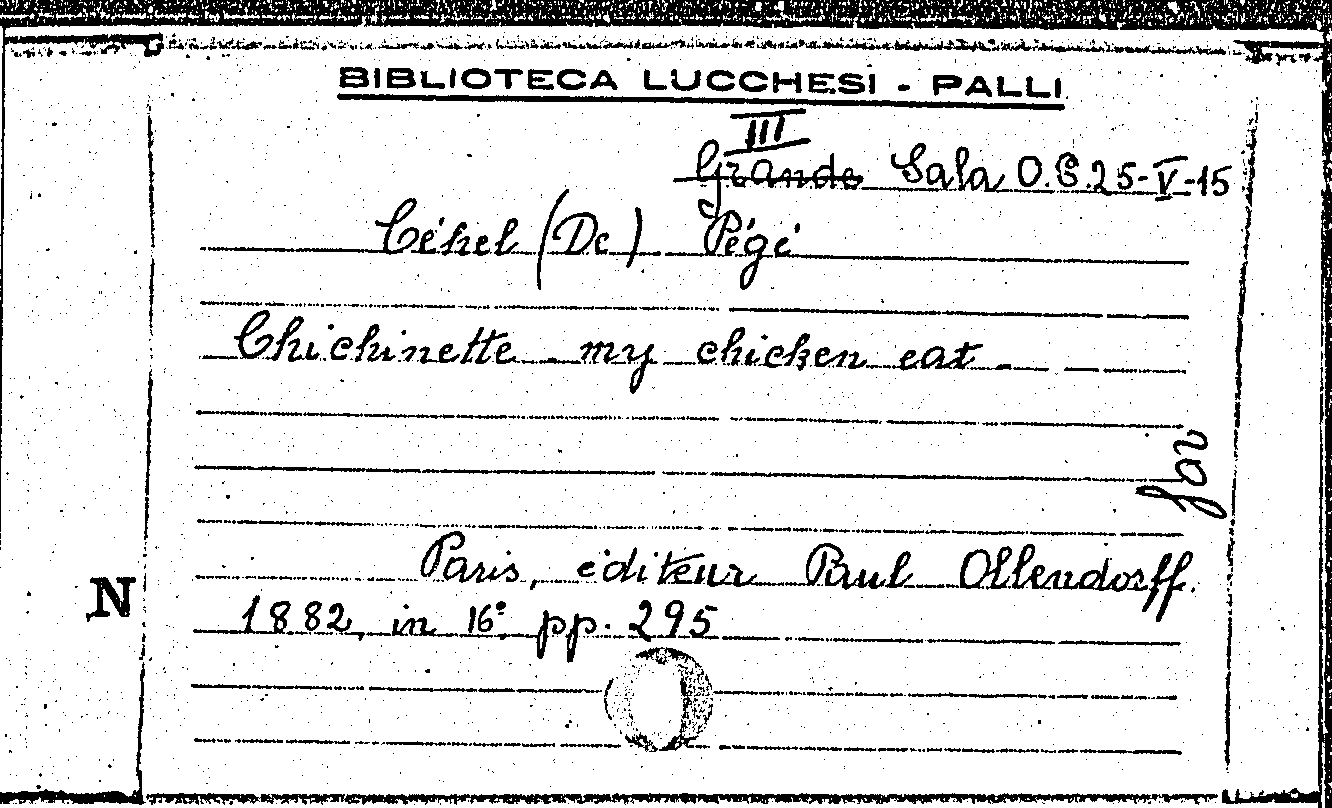 BIBLIOTECA LUCCHESI - PALLI
III
Grande Sala O.S.25-V-15
Céhel (De) Pégé
Chichinette - my chicken eat -
for
Paris, éditeur Paul Ollendorff.
N
1882, in 16°. pp. 295